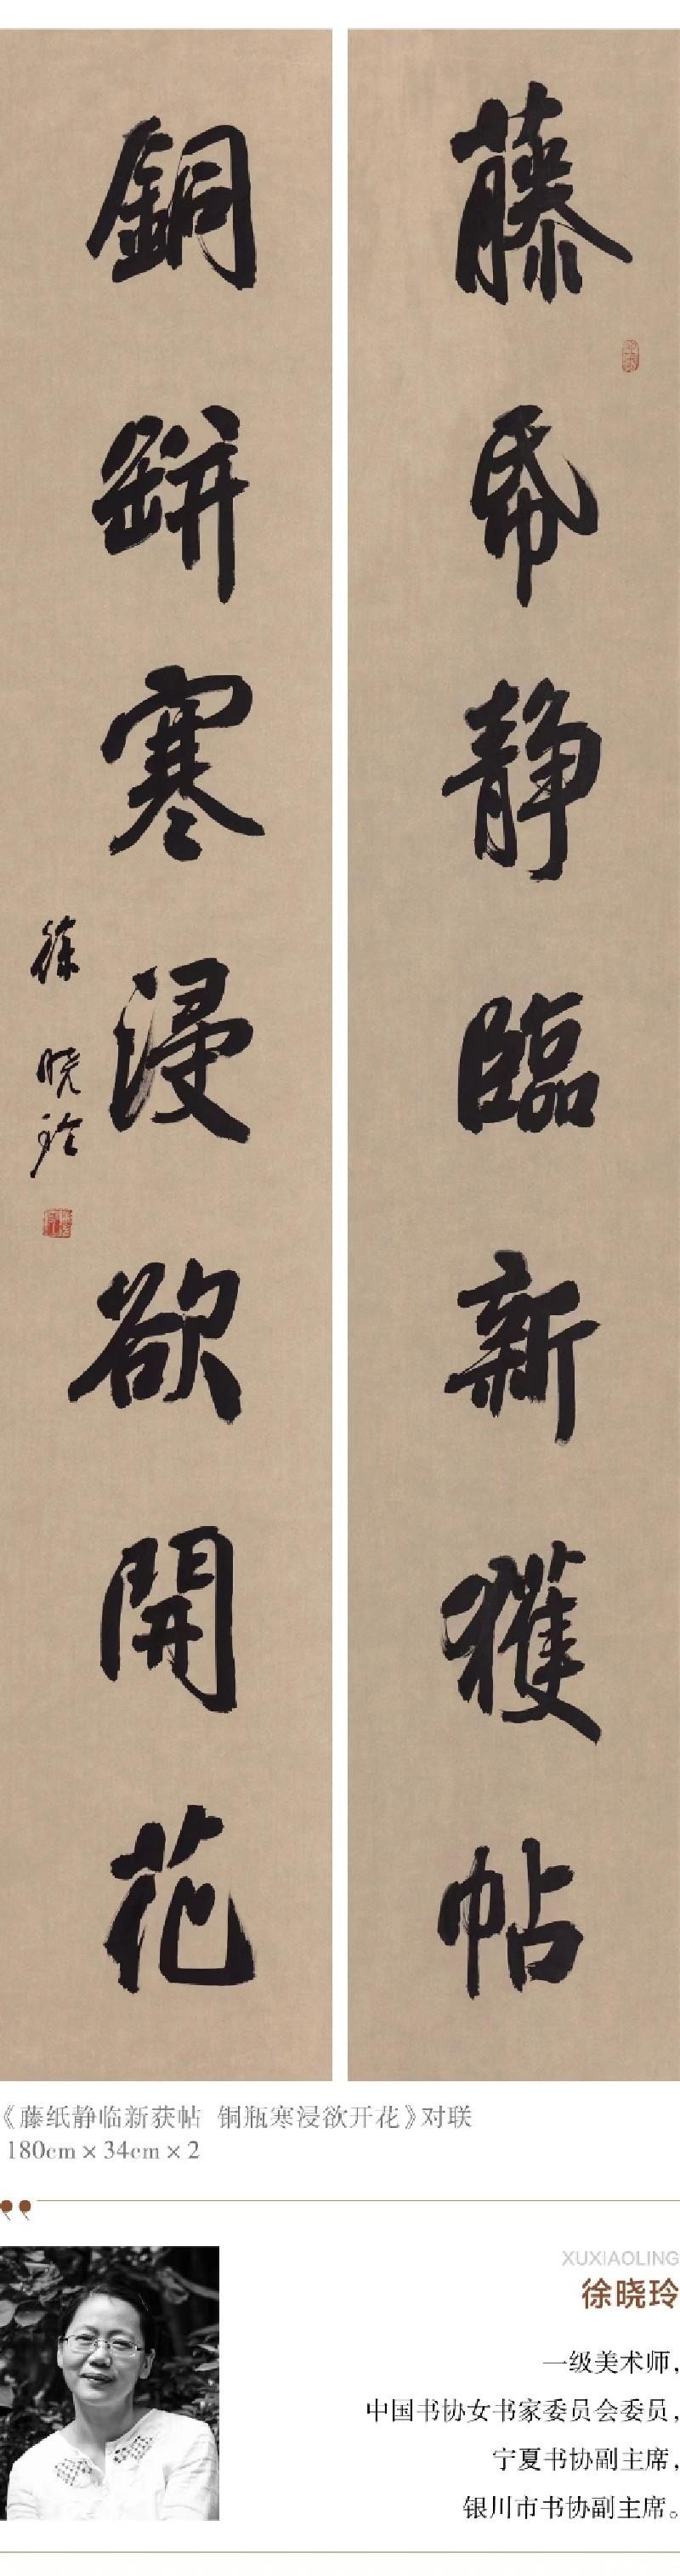 藤帋静臨新獲帖
銅缾寒浸欲開花
徐晓玲
《藤纸静临新获帖 铜瓶寒浸欲开花》对联
180cm × 34cm × 2
XUXIAOLING
徐晓玲
一级美术师,
中国书协女书家委员会委员,
宁夏书协副主席,
银川市书协副主席。